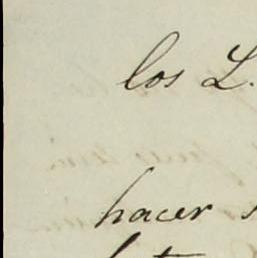 los L.
hacer